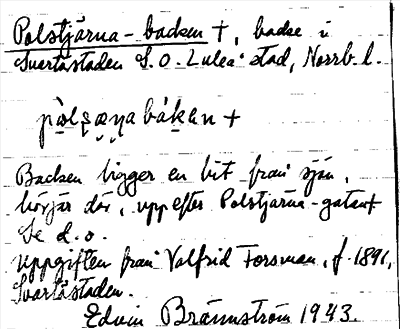 Polstjärna-backen +, backe i
Svartöstaden S.O. Luleå stad, Norrb. l.
Backen ligger en bit från sjön,
börjar där, uppefter Polstjärna-gatan +
Se d.o.
Uppgiften från Valfrid Forsman, f. 1891,
Svartöstaden.
Edvin Brännström 1943.